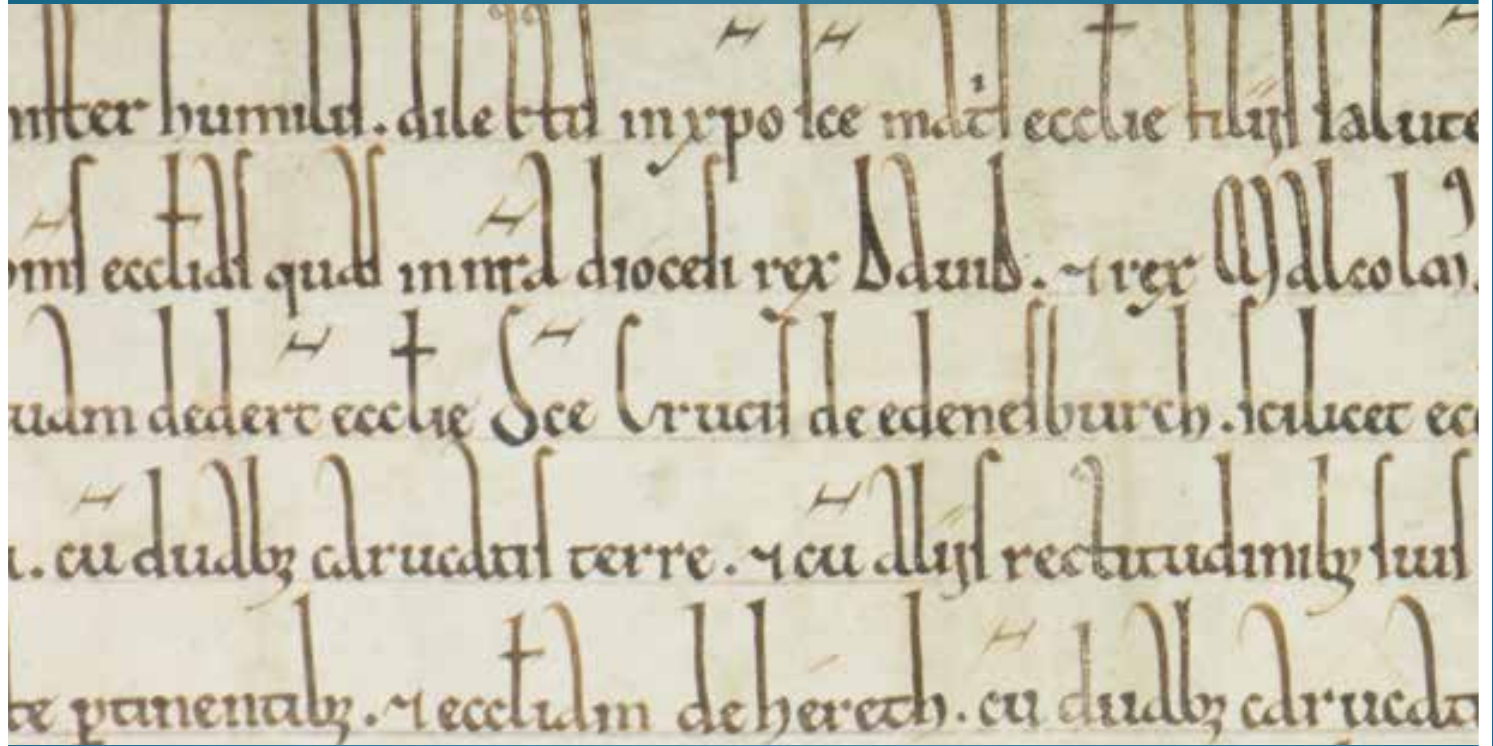 humilis. dilectis in xpo sce matis ecclie filiis salute
ecclias quas in nra diocesi rex Dauid. ⁊ rex Malcolm
dedert ecclie Sce Crucis de edenesburch. scilicet
cu duabꝫ carucatis terre. ⁊ cu aliis rectitudinibꝫ suis
ꝑtinentibꝫ. ⁊ eccliam de hereth. cu duabꝫ